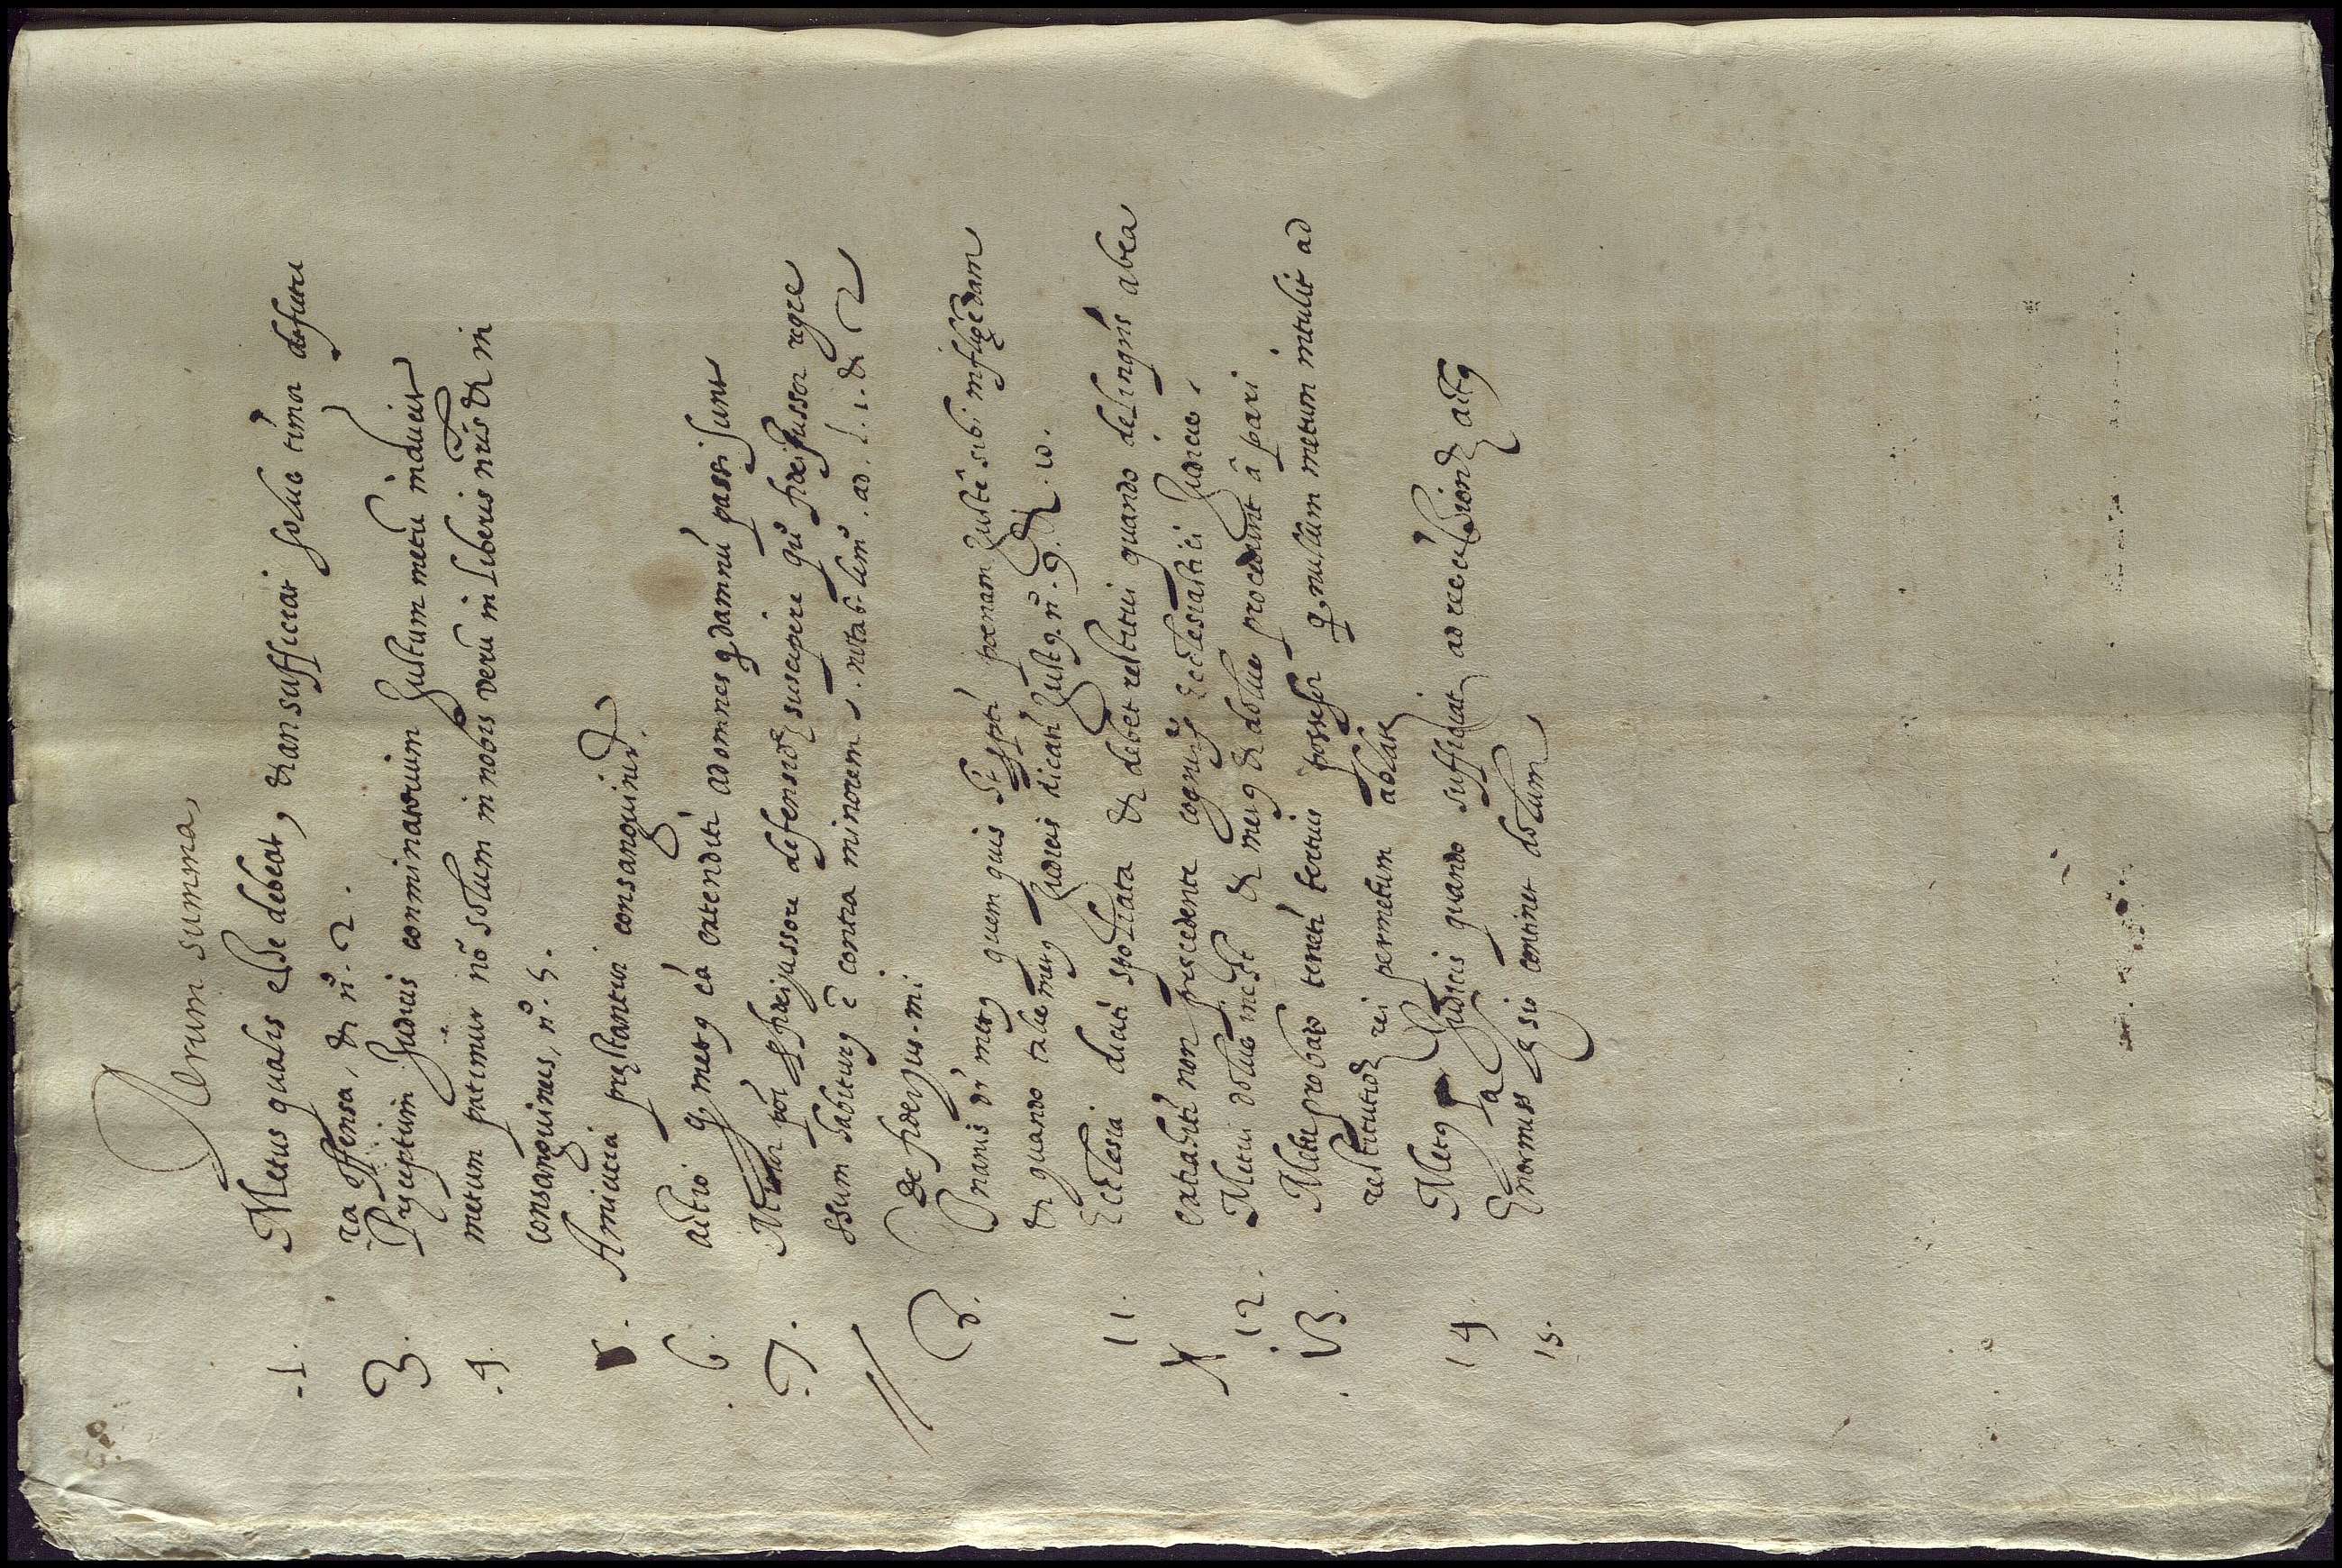 Rerum summa,
1. Metus qualis esse debeat, & an sufficiat solus timor de futu
ra offensa, & n.º 2.
3. Preceptum Judicis comminatorium Justum metũ inducit
4. metum patimur nõ solum in nobis verũ in liberis nr̃is & in
consanguineis, n.º 5.
5. Amicicia prestantior consanguinit.
6. actio q metus cã extendit ad omnes q damnũ passi sunt
7. Minor põt fideijussore defensio suscipere qñ fideijussor regre
ssum habiturus ẽ contra minorem, notab. lim. ad. l. 1. & 2
de fideijus. mi
8. Inanis dr̃ metus quem quis Justẽ sibi infligẽdam
& quando talis metus Judicis dicat Justus n.º 9. & 10.
11. Ecclesia dicat spoliata & debet restitui quando ab ea
extrahit non precedente Ecclesiastici Judicis,
12. Metui dolus inest & metus & dolus procedunt â pari
13. Metu probato tenet tertius possessor q nullum metum intulit ad
restitutio rei per metum ablatæ
14 Metus Judicis quando sufficiat ad
15. Enormis lesio continet dolum